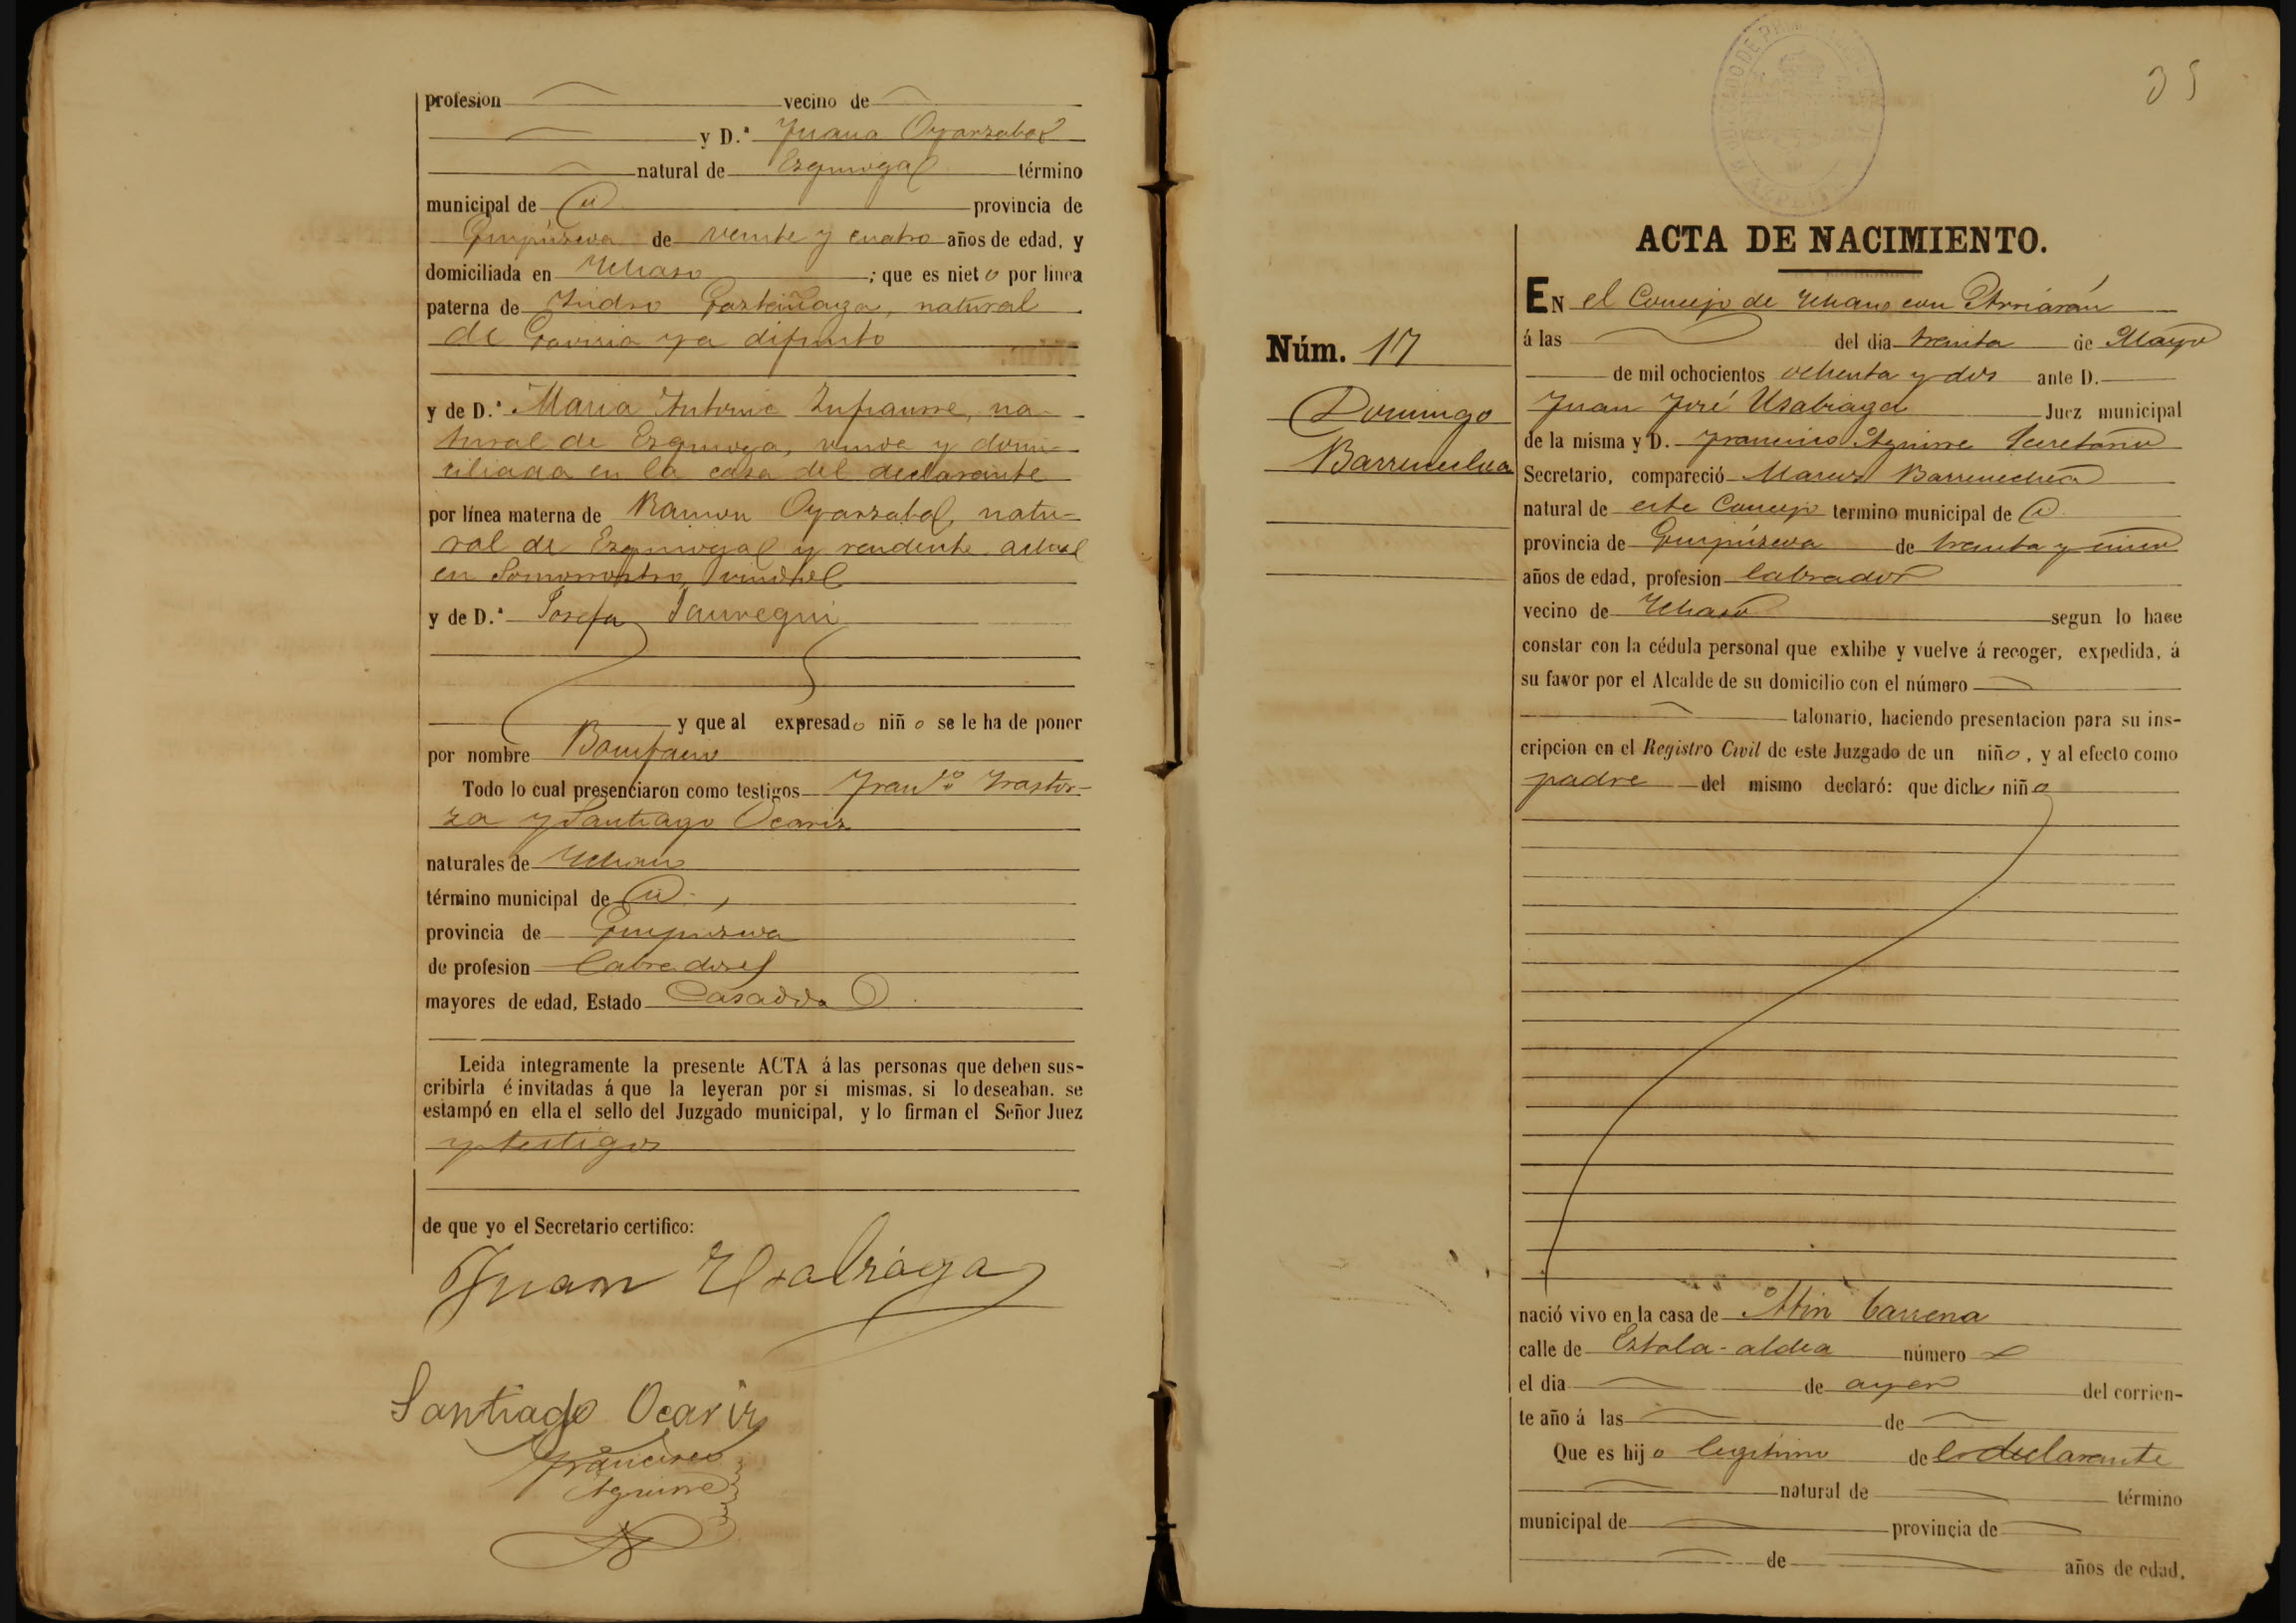 profesion vecino de
y D.ª Juana Oyarzabal
natural de Ezquiogal término
municipal de id. provincia de
Guipúzcoa de veinte y cuatro años de edad, y
domiciliada en Ichaso ; que es nieto por línea
paterna de Isidro Gastañaga, natural
de Gaviria ya difunto
y de D.ª Maria Antonia natural
tural de Ezquioga, viuda y domi-
ciliada en la casa del declarante
por línea materna de Ramon Oyarzabal, natu-
ral de Ezquiogal y residente actual
en Somorrostro,
y de D.ª Josefa Jauregui
y que al expresado niño se le ha de poner
por nombre Bonifacio
Todo lo cual presenciaron como testigos Fran.co Irastor-
za y Santiago Ocariz
naturales de Ichaso
término municipal de id.
provincia de Guipúzcoa
de profesion Labradores
mayores de edad, Estado Casados
Leida integramente la presente ACTA á las personas que deben sus-
cribirla é invitadas á que la leyeran por si mismas, si lo deseaban, se
estampó en ella el sello del Juzgado municipal, y lo firman el Señor Juez
y testigos
de que yo el Secretario certifico:
Juan Usabiaga
Santiago Ocariz
Francisco
Aguirre
35
ACTA DE NACIMIENTO.
Núm. 17
Domingo
Barrenechea
EN el Concejo de Ichaso con Arriarán
á las del dia treinta de Mayo
de mil ochocientos ochenta y dos ante D.
Juan José Usabiaga Juez municipal
de la misma y D. Francisco Aguirre Secretario
Secretario, compareció Marcos Barrenechea
natural de este Concejo termino municipal de id.
provincia de Guipúzcoa de treinta y cinco
años de edad, profesion labrador
vecino de Ichaso segun lo hace
constar con la cédula personal que exhibe y vuelve á recoger, expedida, á
su favor por el Alcalde de su domicilio con el número
talonario, haciendo presentacion para su ins-
cripcion en el Registro Civil de este Juzgado de un niño, y al efecto como
padre del mismo declaró: que dicho niño
nació vivo en la casa de Atin barrena
calle de Estala-aldea número
el dia de ayer del corrien-
te año á las de
Que es hijo legitimo de lo declarante
natural de término
municipal de provincia de
de años de edad.